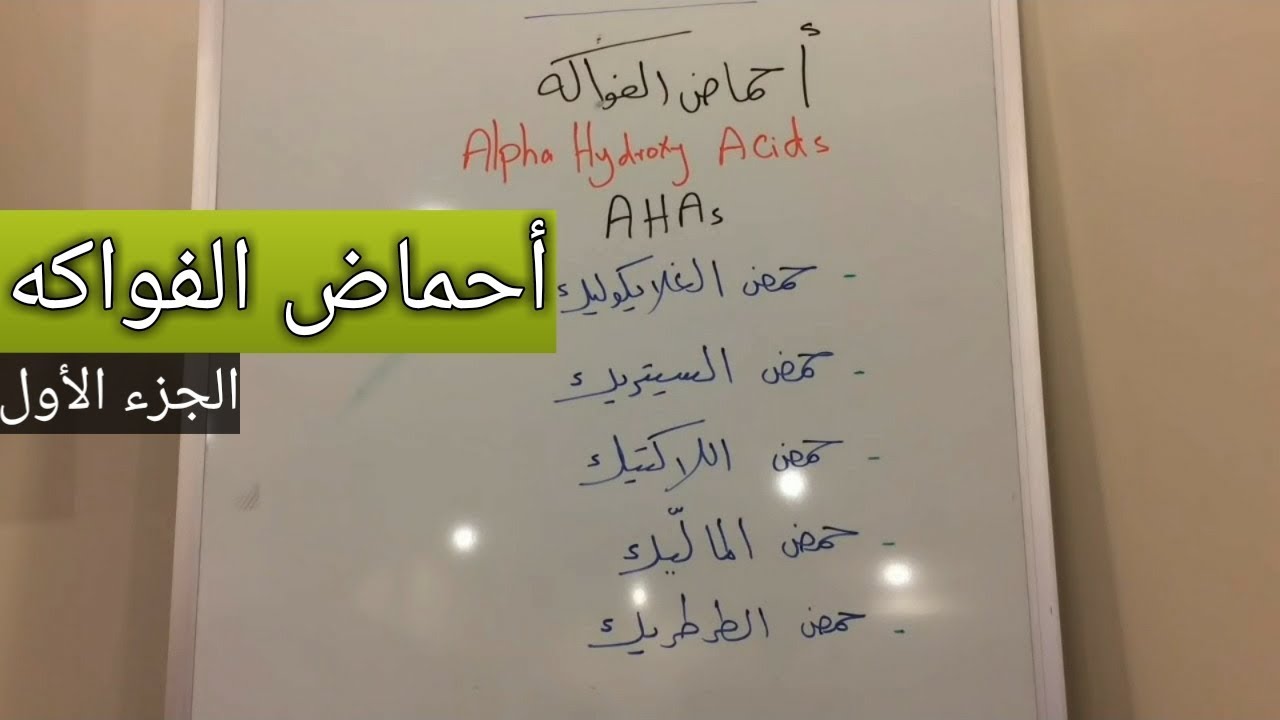 أحماض الفواكه
Alpha Hydroxy Acids
AHAs
أحماض الفواكه
الجزء الأول
- حمض الغلايكوليك
- حمض السيتريك
- حمض اللاكتيك
- حمض المالّيك
- حمض الطرطريك